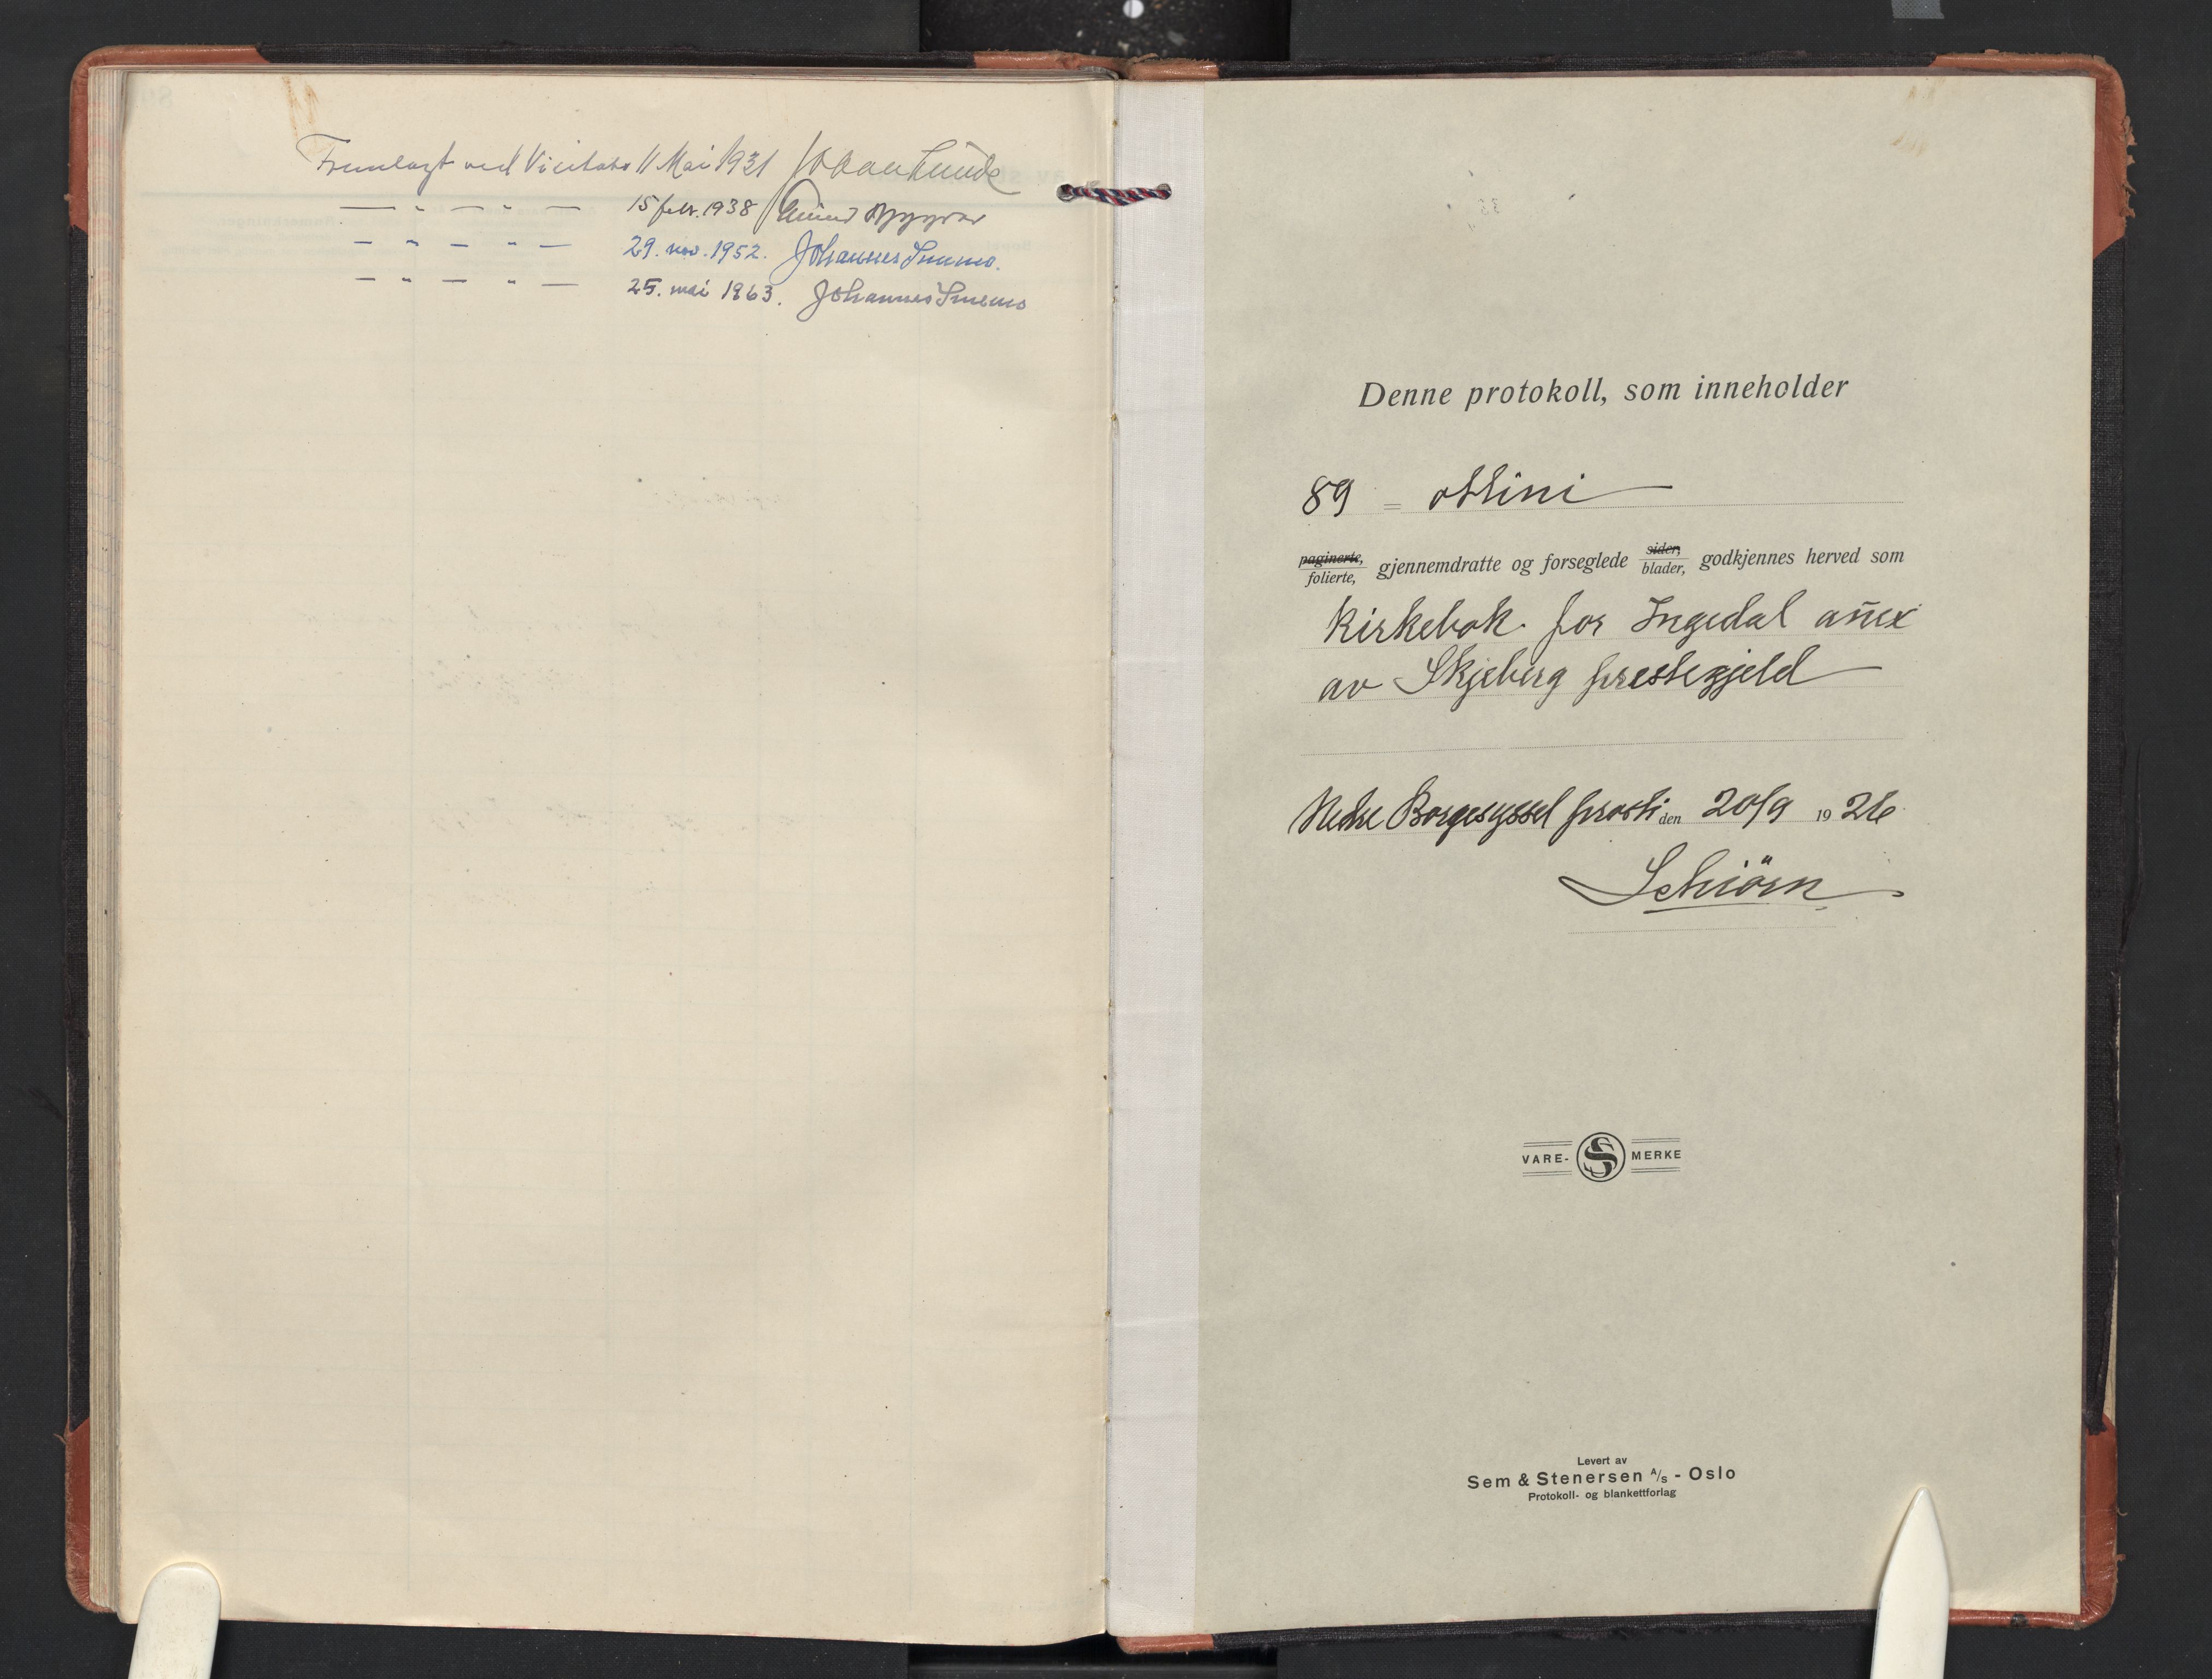 Fremlagt ved Visitats 11 Mai 1931 Johan Lunde
— " — " — 15 febr. 1938 Eivind Berggrav
— " — " — 29. nov. 1952. Johannes Smemo.
— " — " — 25. mai 1963. Johannes Smemo
Denne protokoll, som inneholder
89 = otti ni
paginerte, folierte, gjennemdratte og forseglede sider, blader, godkjennes herved som
Kirkebok for Ingedal anex
av Skjeberg prestegjeld
Nedre Borgesyssel prosti den 20/9 1926
Schiörn
VARE- S MERKE
Levert av
Sem & Stenersen A/s - Oslo
Protokoll- og blankettforlag